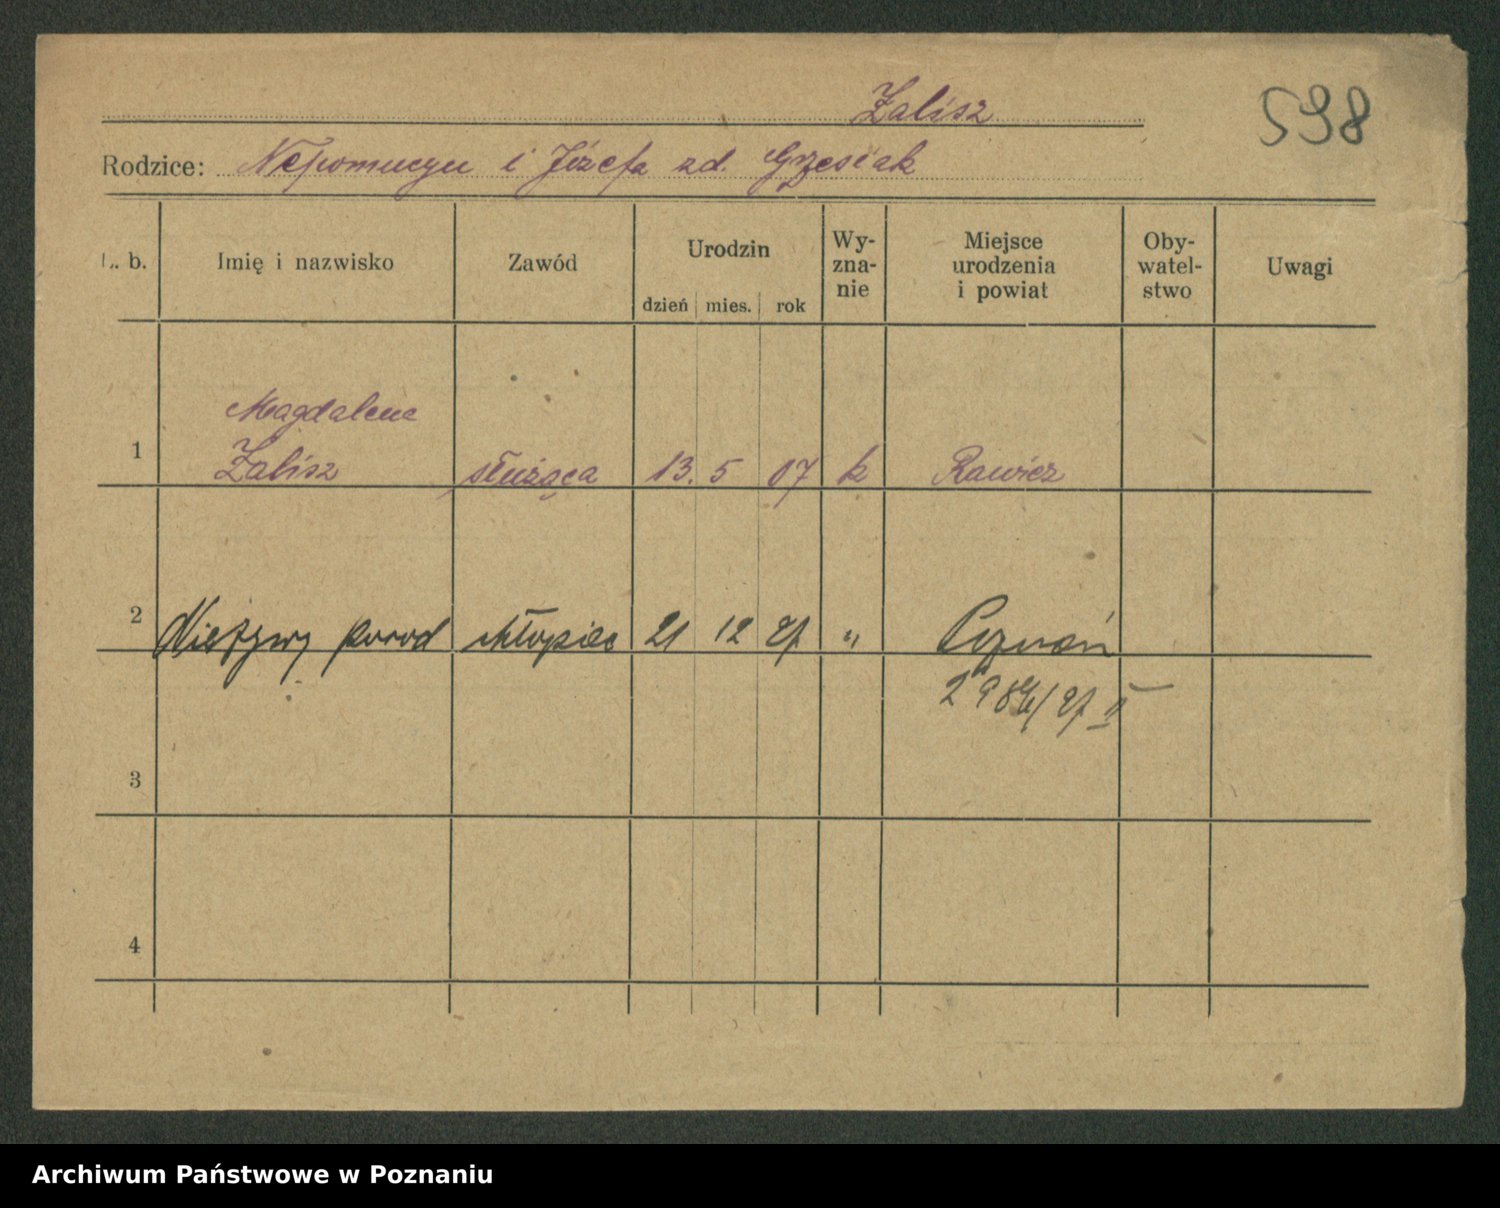 Żalisz
598
Rodzice: Nepomucyn i Józefa zd. Grzesiak
L. b.
Imię i nazwisko
Zawód
Urodzin
dzień mies. rok
Wy-
zna-
nie
Miejsce
urodzenia
i powiat
Oby-
watel-
stwo
Uwagi
Magdalena
1 Żalisz służąca 13. 5 07 k Rawicz
2 Nieżywy poród chłopiec 21 12 27 " Poznań
/27 II
3
4
Archiwum Państwowe w Poznaniu